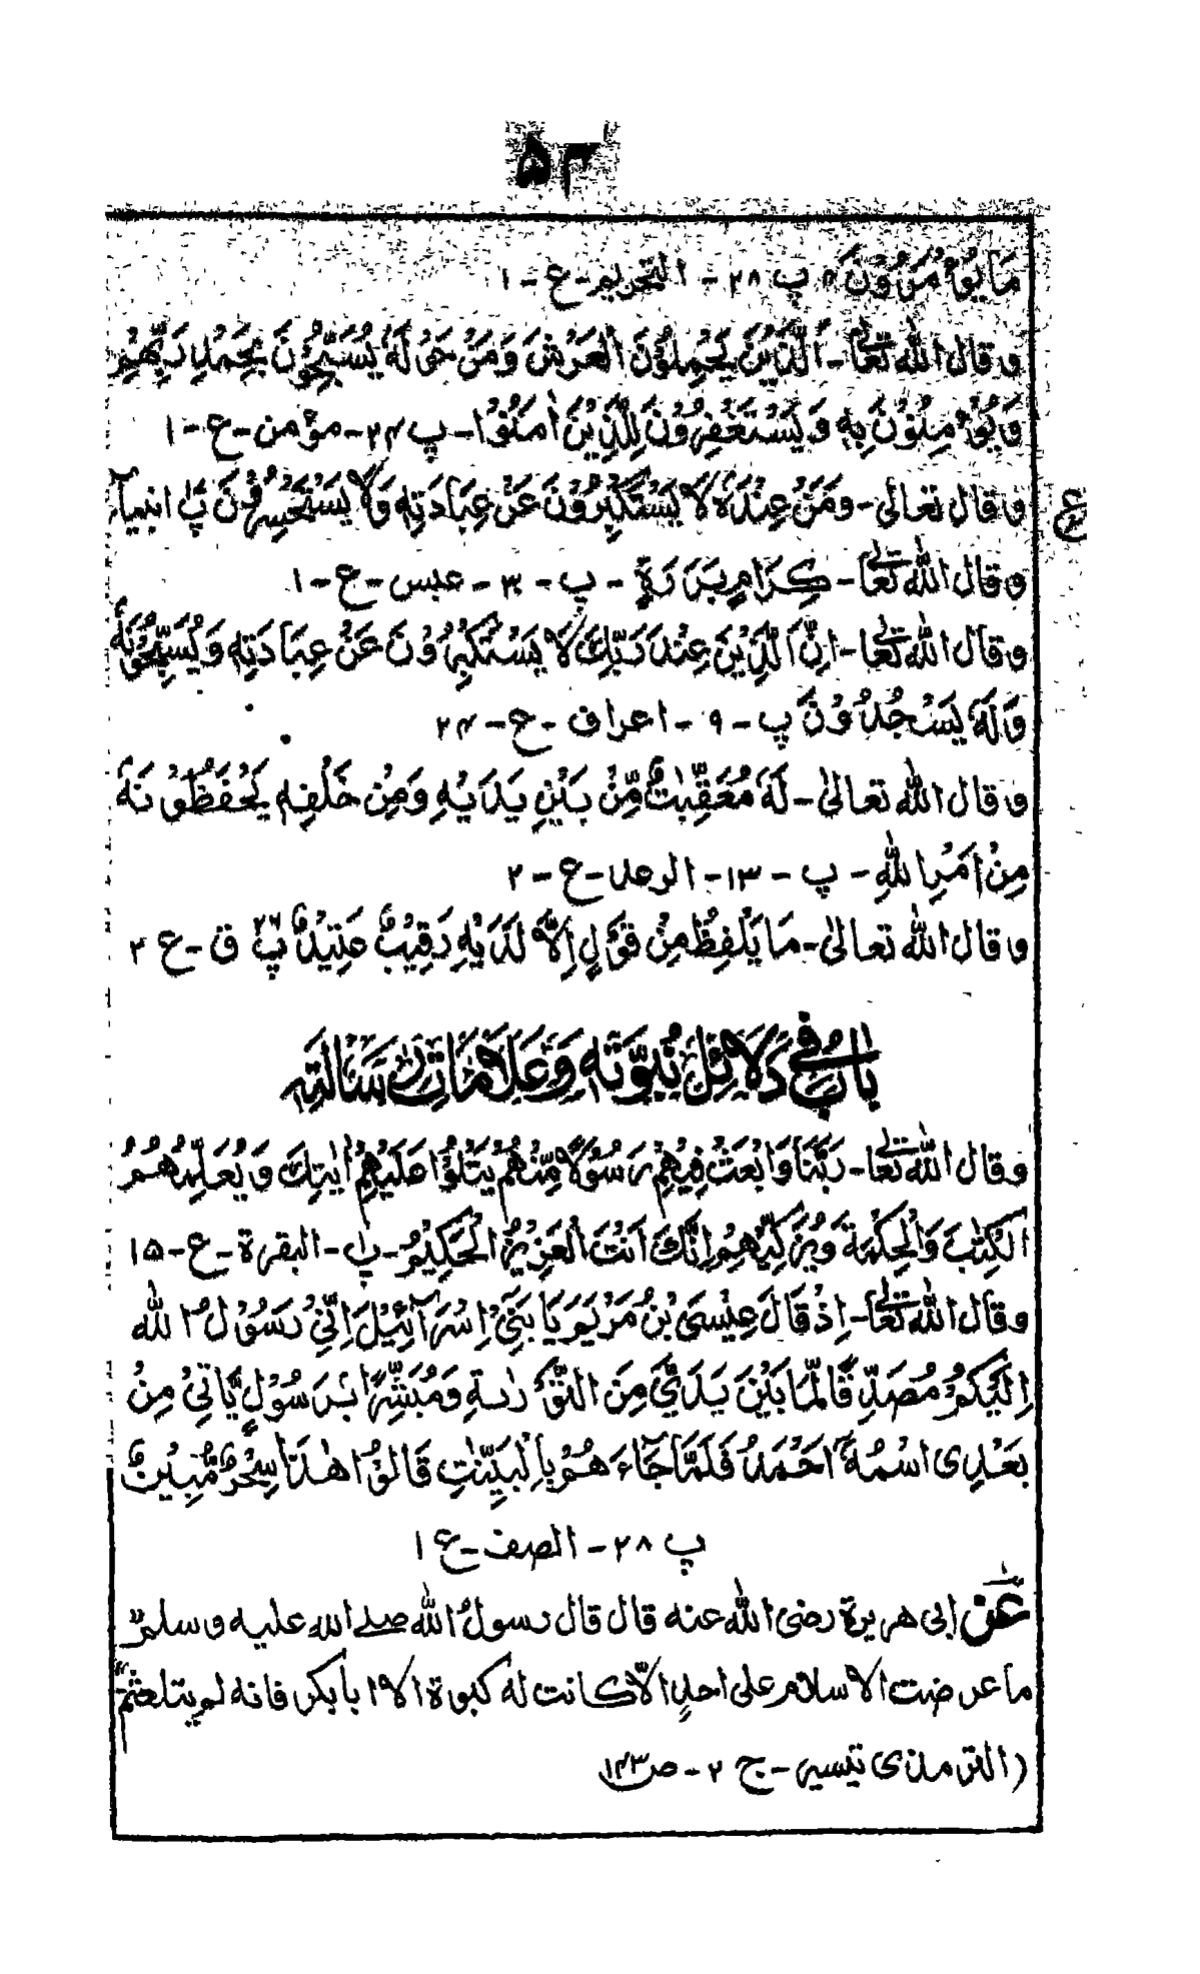 ۵۳
مَا يُؤْمَرُوْنَ ۵ پ ۲۸ - التحریم - ع - ۱
وقال اللہ تعالٰی - اَلَّذِيْنَ يَحْمِلُوْنَ الْعَرْشَ وَمَنْ حَوْلَهٗ يُسَبِّحُوْنَ بِحَمْدِ رَبِّهِمْ
وَيُؤْمِنُوْنَ بِهٖ وَيَسْتَغْفِرُوْنَ لِلَّذِيْنَ اٰمَنُوْا - پ ۲۴ - مؤمن - ع - ۱
وقال تعالٰی - وَمَنْ عِنْدَهٗ لَا يَسْتَكْبِرُوْنَ عَنْ عِبَادَتِهٖ وَلَا يَسْتَحْسِرُوْنَ پ انبیاء
ع
وقال اللہ تعالٰی - كِرَامٍ بَرَرَةٍ - پ - ۳ - عبس - ع - ۱
وقال اللہ تعالٰی - اِنَّ الَّذِيْنَ عِنْدَ رَبِّكَ لَا يَسْتَكْبِرُوْنَ عَنْ عِبَادَتِهٖ وَيُسَبِّحُوْنَهٗ
وَلَهٗ يَسْجُدُوْنَ پ - ۹ - اعراف - ع - ۲۴
وقال اللہ تعالیٰ - لَهٗ مُعَقِّبٰتٌ مِّنْ بَيْنِ يَدَيْهِ وَمِنْ خَلْفِهٖ يَحْفَظُوْنَهٗ
مِنْ اَمْرِ اللّٰهِ - پ - ۱۳ - الرعد - ع - ۲
وقال اللہ تعالیٰ - مَا يَلْفِظُ مِنْ قَوْلٍ اِلَّا لَدَيْهِ رَقِيْبٌ عَتِيْدٌ پ ۲۶ ق - ع ۲
بَابٌ فِيْ دَلَائِلِ نُبُوَّتِهٖ وَعَلَامَاتِ رِسَالَتِهٖ
وقال اللہ تعالٰی - رَبَّنَا وَابْعَثْ فِيْهِمْ رَسُوْلًا مِّنْهُمْ يَتْلُوْا عَلَيْهِمْ اٰيٰتِكَ وَيُعَلِّمُهُمُ
الْكِتٰبَ وَالْحِكْمَةَ وَيُزَكِّيْهِمْ اِنَّكَ اَنْتَ الْعَزِيْزُ الْحَكِيْمُ - پ۱ - البقرة - ع - ۱۵
وقال اللہ تعالٰی - اِذْ قَالَ عِيْسَى بْنُ مَرْيَمَ يَا بَنِيْ اِسْرَآئِيْلَ اِنِّيْ رَسُوْلُ اللّٰه
اِلَيْكُمْ مُصَدِّقًا لِّمَا بَيْنَ يَدَيَّ مِنَ التَّوْرٰىةِ وَمُبَشِّرًا بِرَسُوْلٍ يَّاتِيْ مِنْ
بَعْدِى اسْمُهٗ اَحْمَدُ فَلَمَّا جَآءَهُمْ بِالْبَيِّنٰتِ قَالُوْا هٰذَا سِحْرٌ مُّبِيْنٌ
پ ۲۸ - الصف - ع ۱
عَنْ ابی هریرة رضی اللہ عنه قال قال رسول اللہ صلے اللہ علیه وسلم
ما عرضت الاسلام علی احدٍ الّا کانت له کبوة الا ابا بکر فانه لم یتلعثم
(الترمذی تیسیر - ج ۲ - ص ۱۴۳